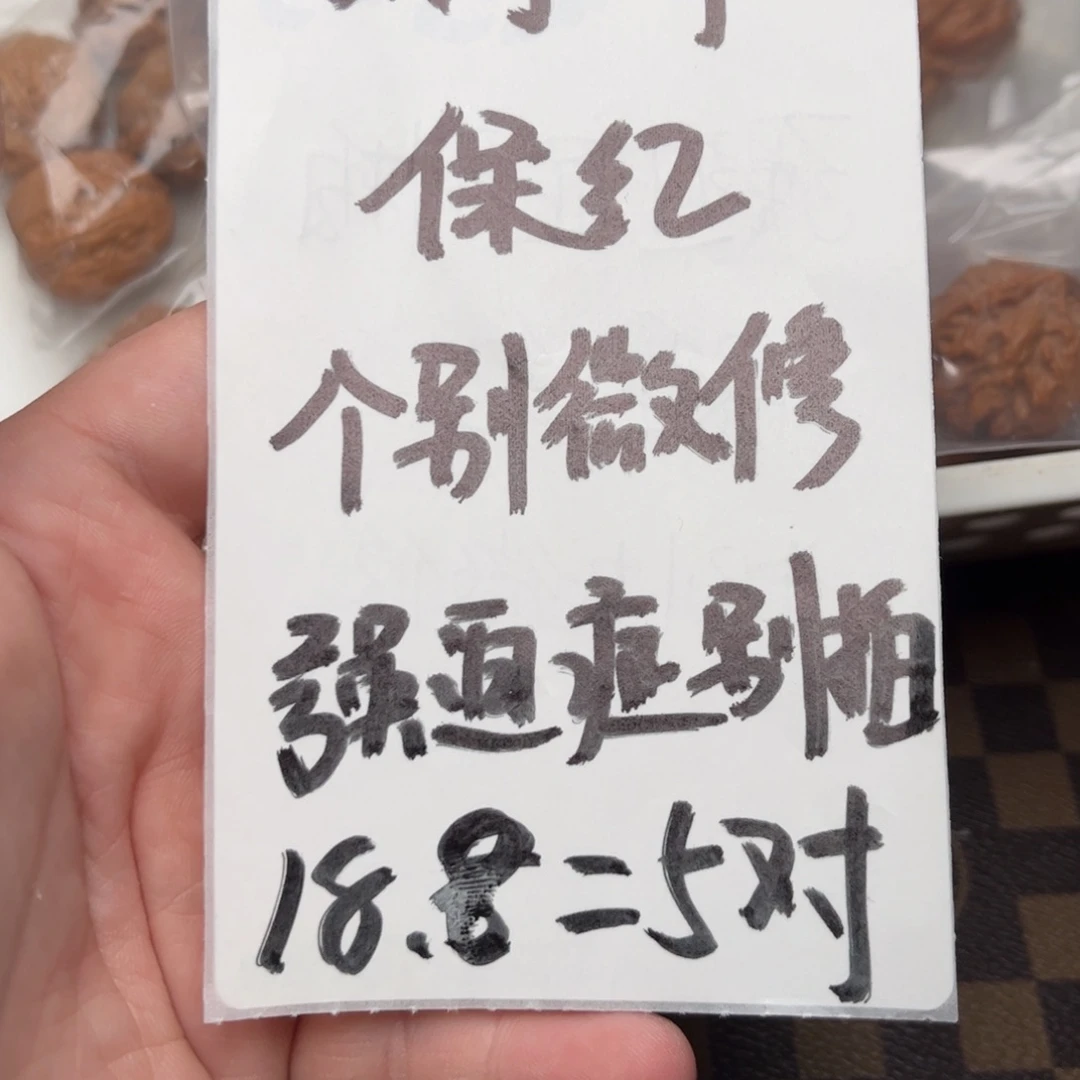 保红
个别微修
强迫症别拍
18.8=5对